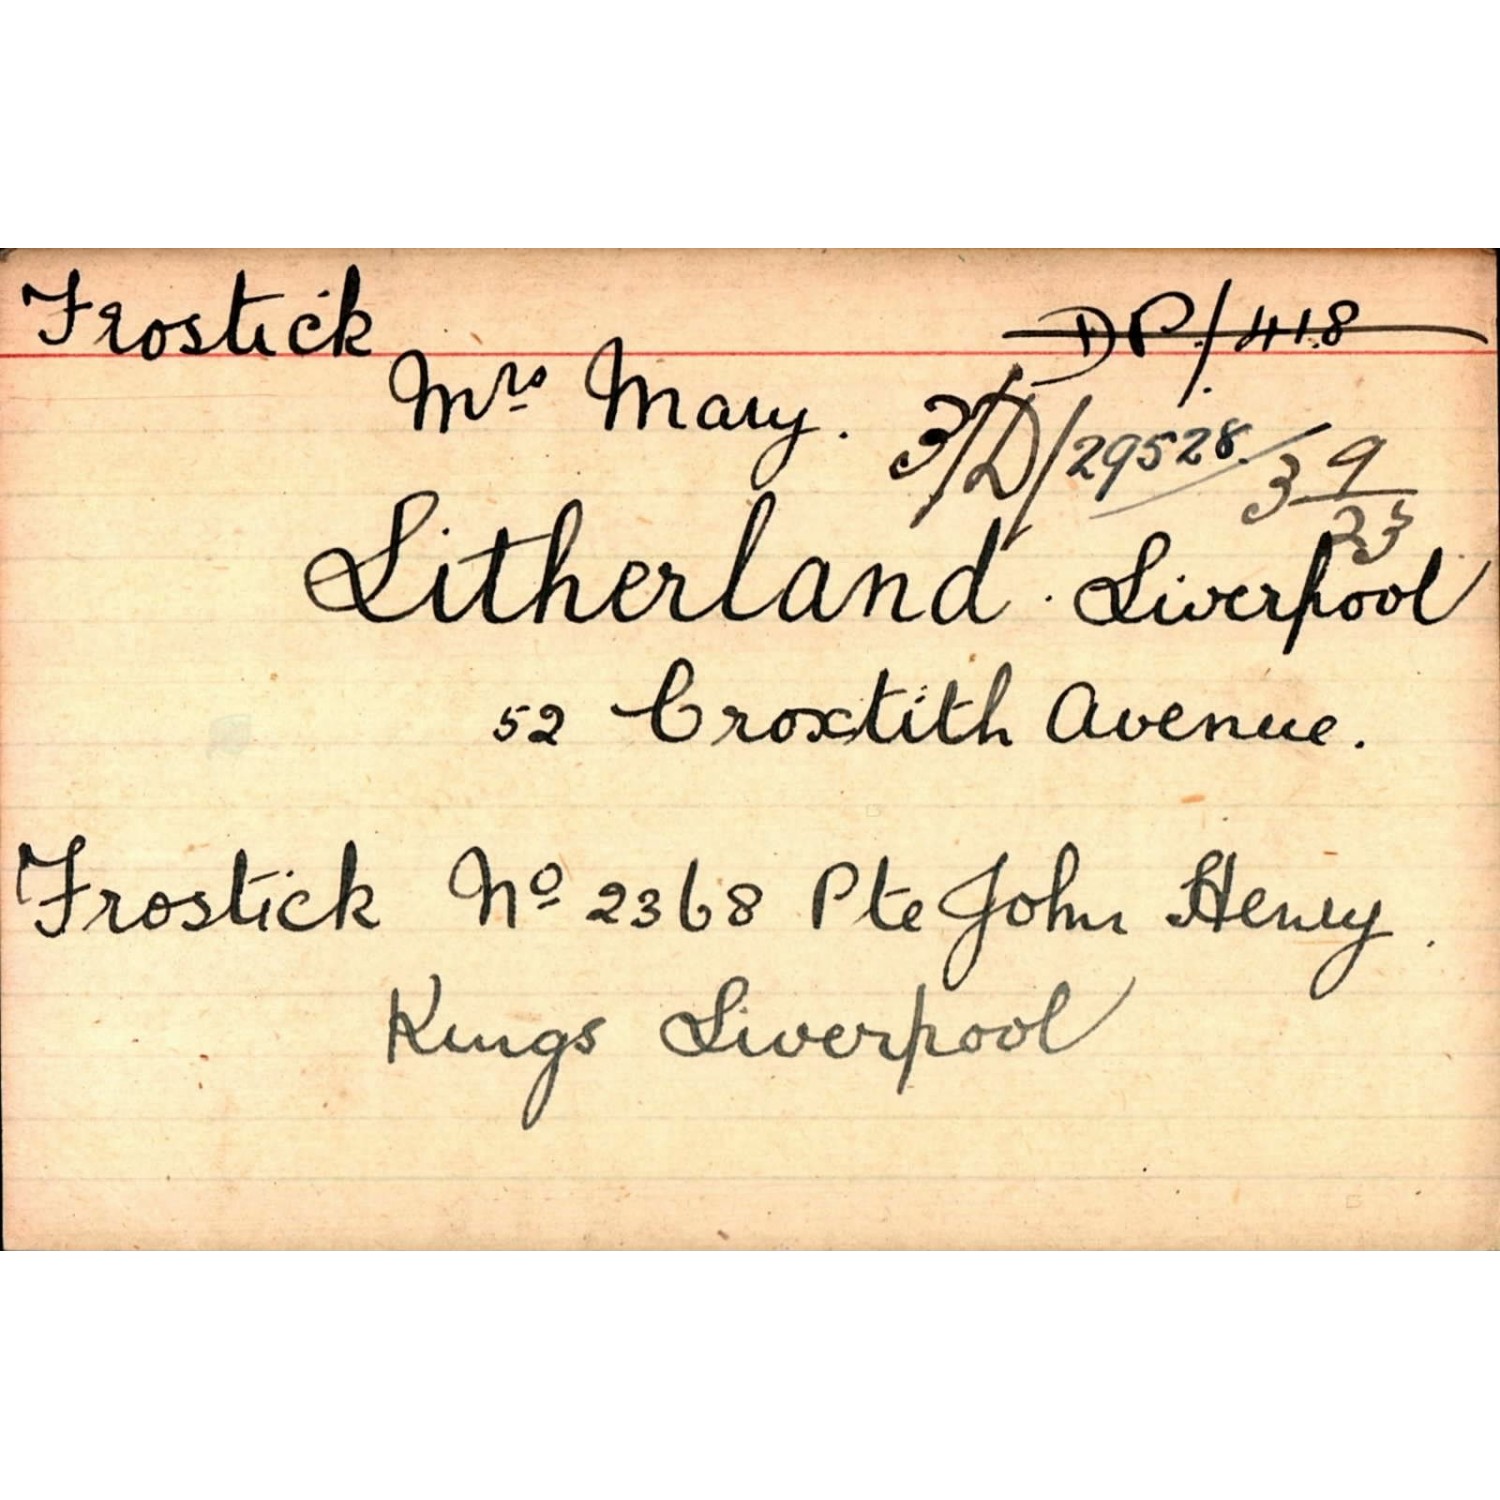 Frostick DP/418
Mrs Mary. 3/D/29528. 3 9/23
Litherland. Liverpool
52 Croxtith Avenue.
Frostick No 2368 Pte John Henry.
Kings Liverpool